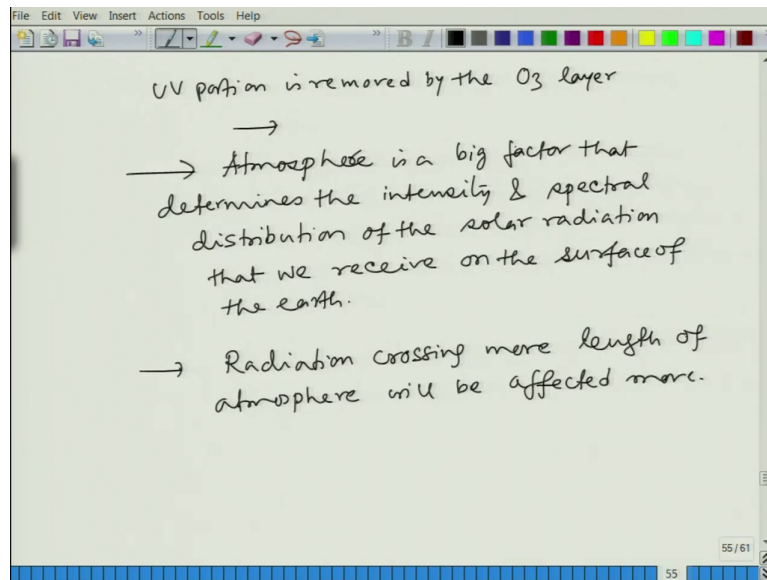 File Edit View Insert Actions Tools Help
UV portion is removed by the O3 layer
→
→ Atmosphere is a big factor that
determines the intensity & spectral
distribution of the solar radiation
that we receive on the surface of
the earth.
→ Radiation crossing more length of
atmosphere will be affected more.
55/61
55